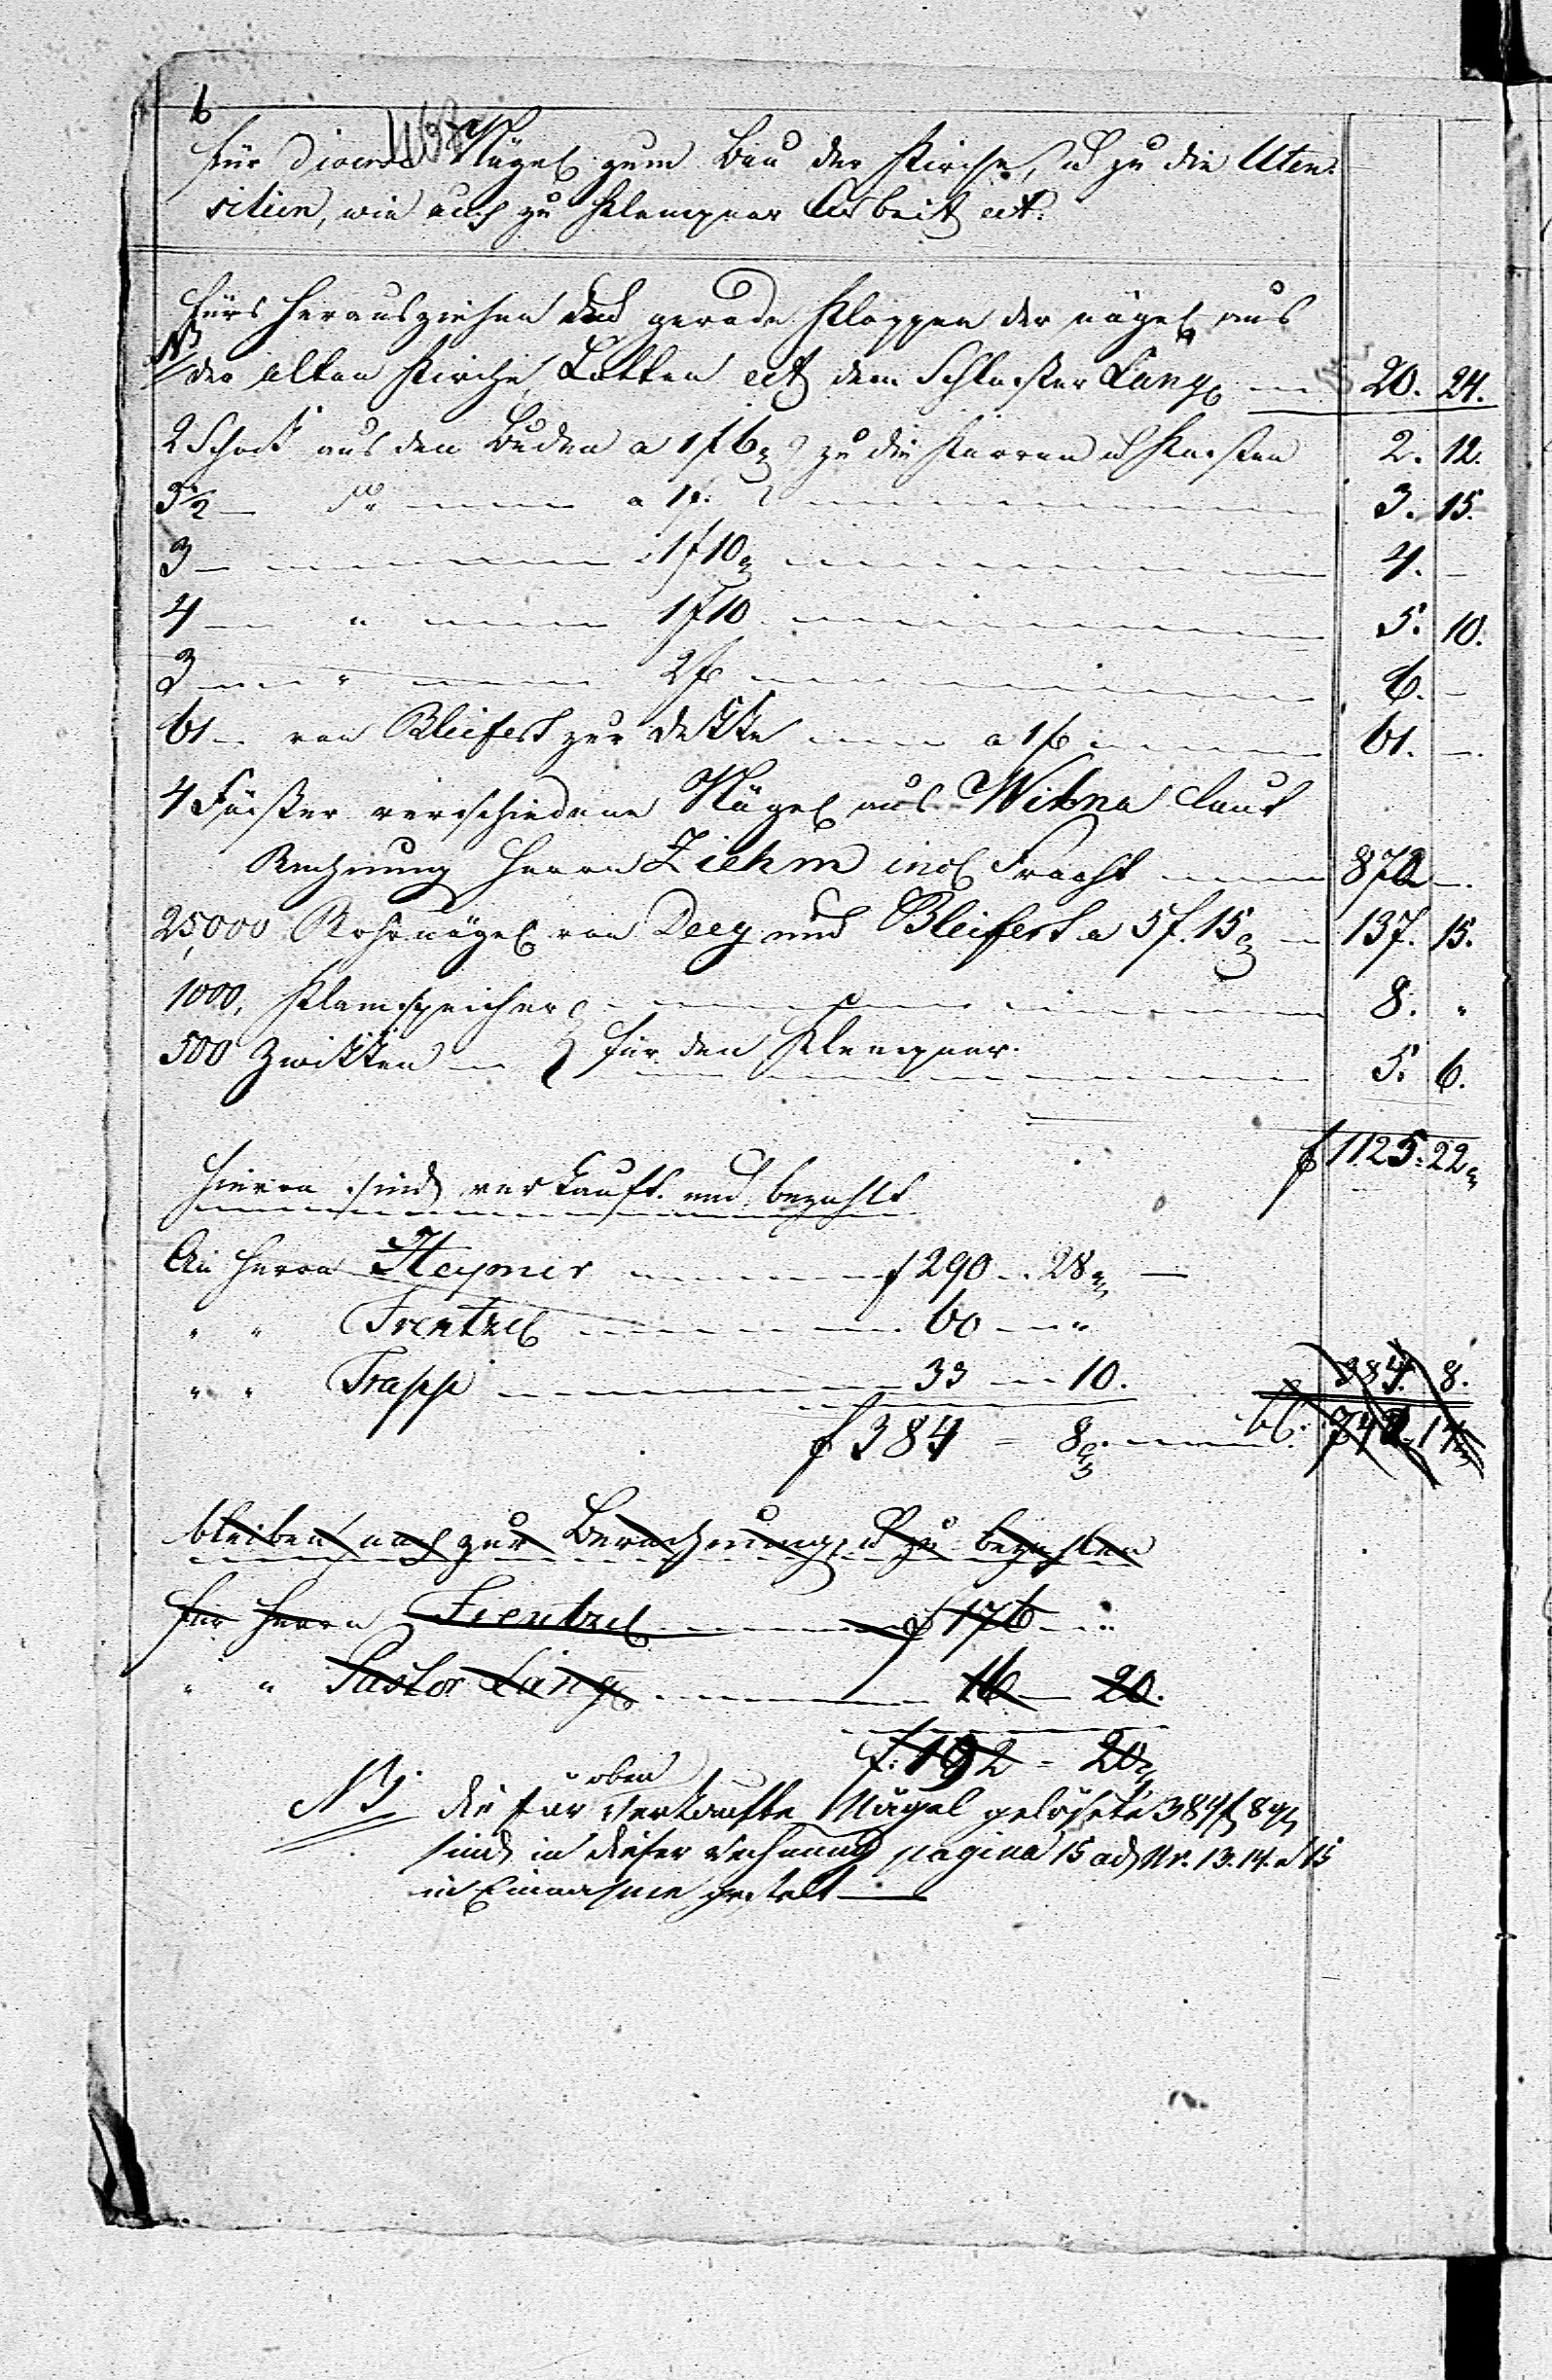 6
Für Diverse Nägel zum Bau der Kirche, u zu die Uten-
silien, wie auch zu Klempner Arbeit ect.
Fürs herausziehen und gerade kloppen der nägel aus
der alten Kirche, Latten ect dem Schlosser Lang 20. 24.
2 Schock aus den Buden a 1f 6g zu die Karren u Kasten 2. 12.
3½ — do — a 1f. 3. 15.
3 — 1f 10g 4. —
4 — " — 1f 10 5. 10.
3 — " — 2f 6. —
61 — von Bleifert zur dekke — a 1f 61. —
4 Fässer verschiedene Nägel aus Wilna laut
Rechnung Herrn Ziehm incl Fracht 872 —
25,000 Rohrnägel von Deeg und Bleifert a 5f. 15g — 137. 15.
1000, 8. "
500 Zwikken — für den Klempner. 5. 6.
f 1125. 22g
Hievon sind verkauft und bezahlt
An Herrn Heymer f 290 . 28g —
" " Frentzel 60 — "
" " Trapp 33 — 10. 384. 8.
f 384 = 8g. bl: 742. 14
bleiben noch zur Berechnung u zu bezahlen
für Herrn Frentzel f 176 — "
" " Pastor Lang 16 — 20.
f. 192 = 20g
oben
NB die für verkaufte Nägel gelösete 384f 8g
sind in dieser Rechnung pagina 15 ad Nr. 13. 14. e 15
in Einnahme gestelt —